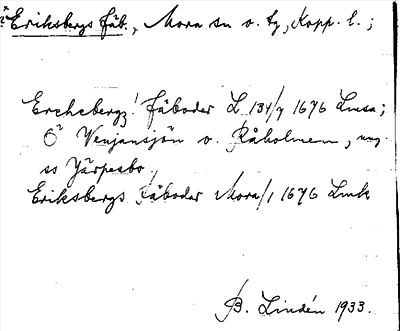 Eriksbergs fäb., Mora sn o. tg, Kopp. l.;
Erchebergz! fäboder L 134/7 1676 Lmsa;
Ö Venjansjön o. Råholmen, ung.
ss Järpesbo.
Eriksbergs Fäbodar Mora/1 1676 Lmk
B. Lindén 1933.